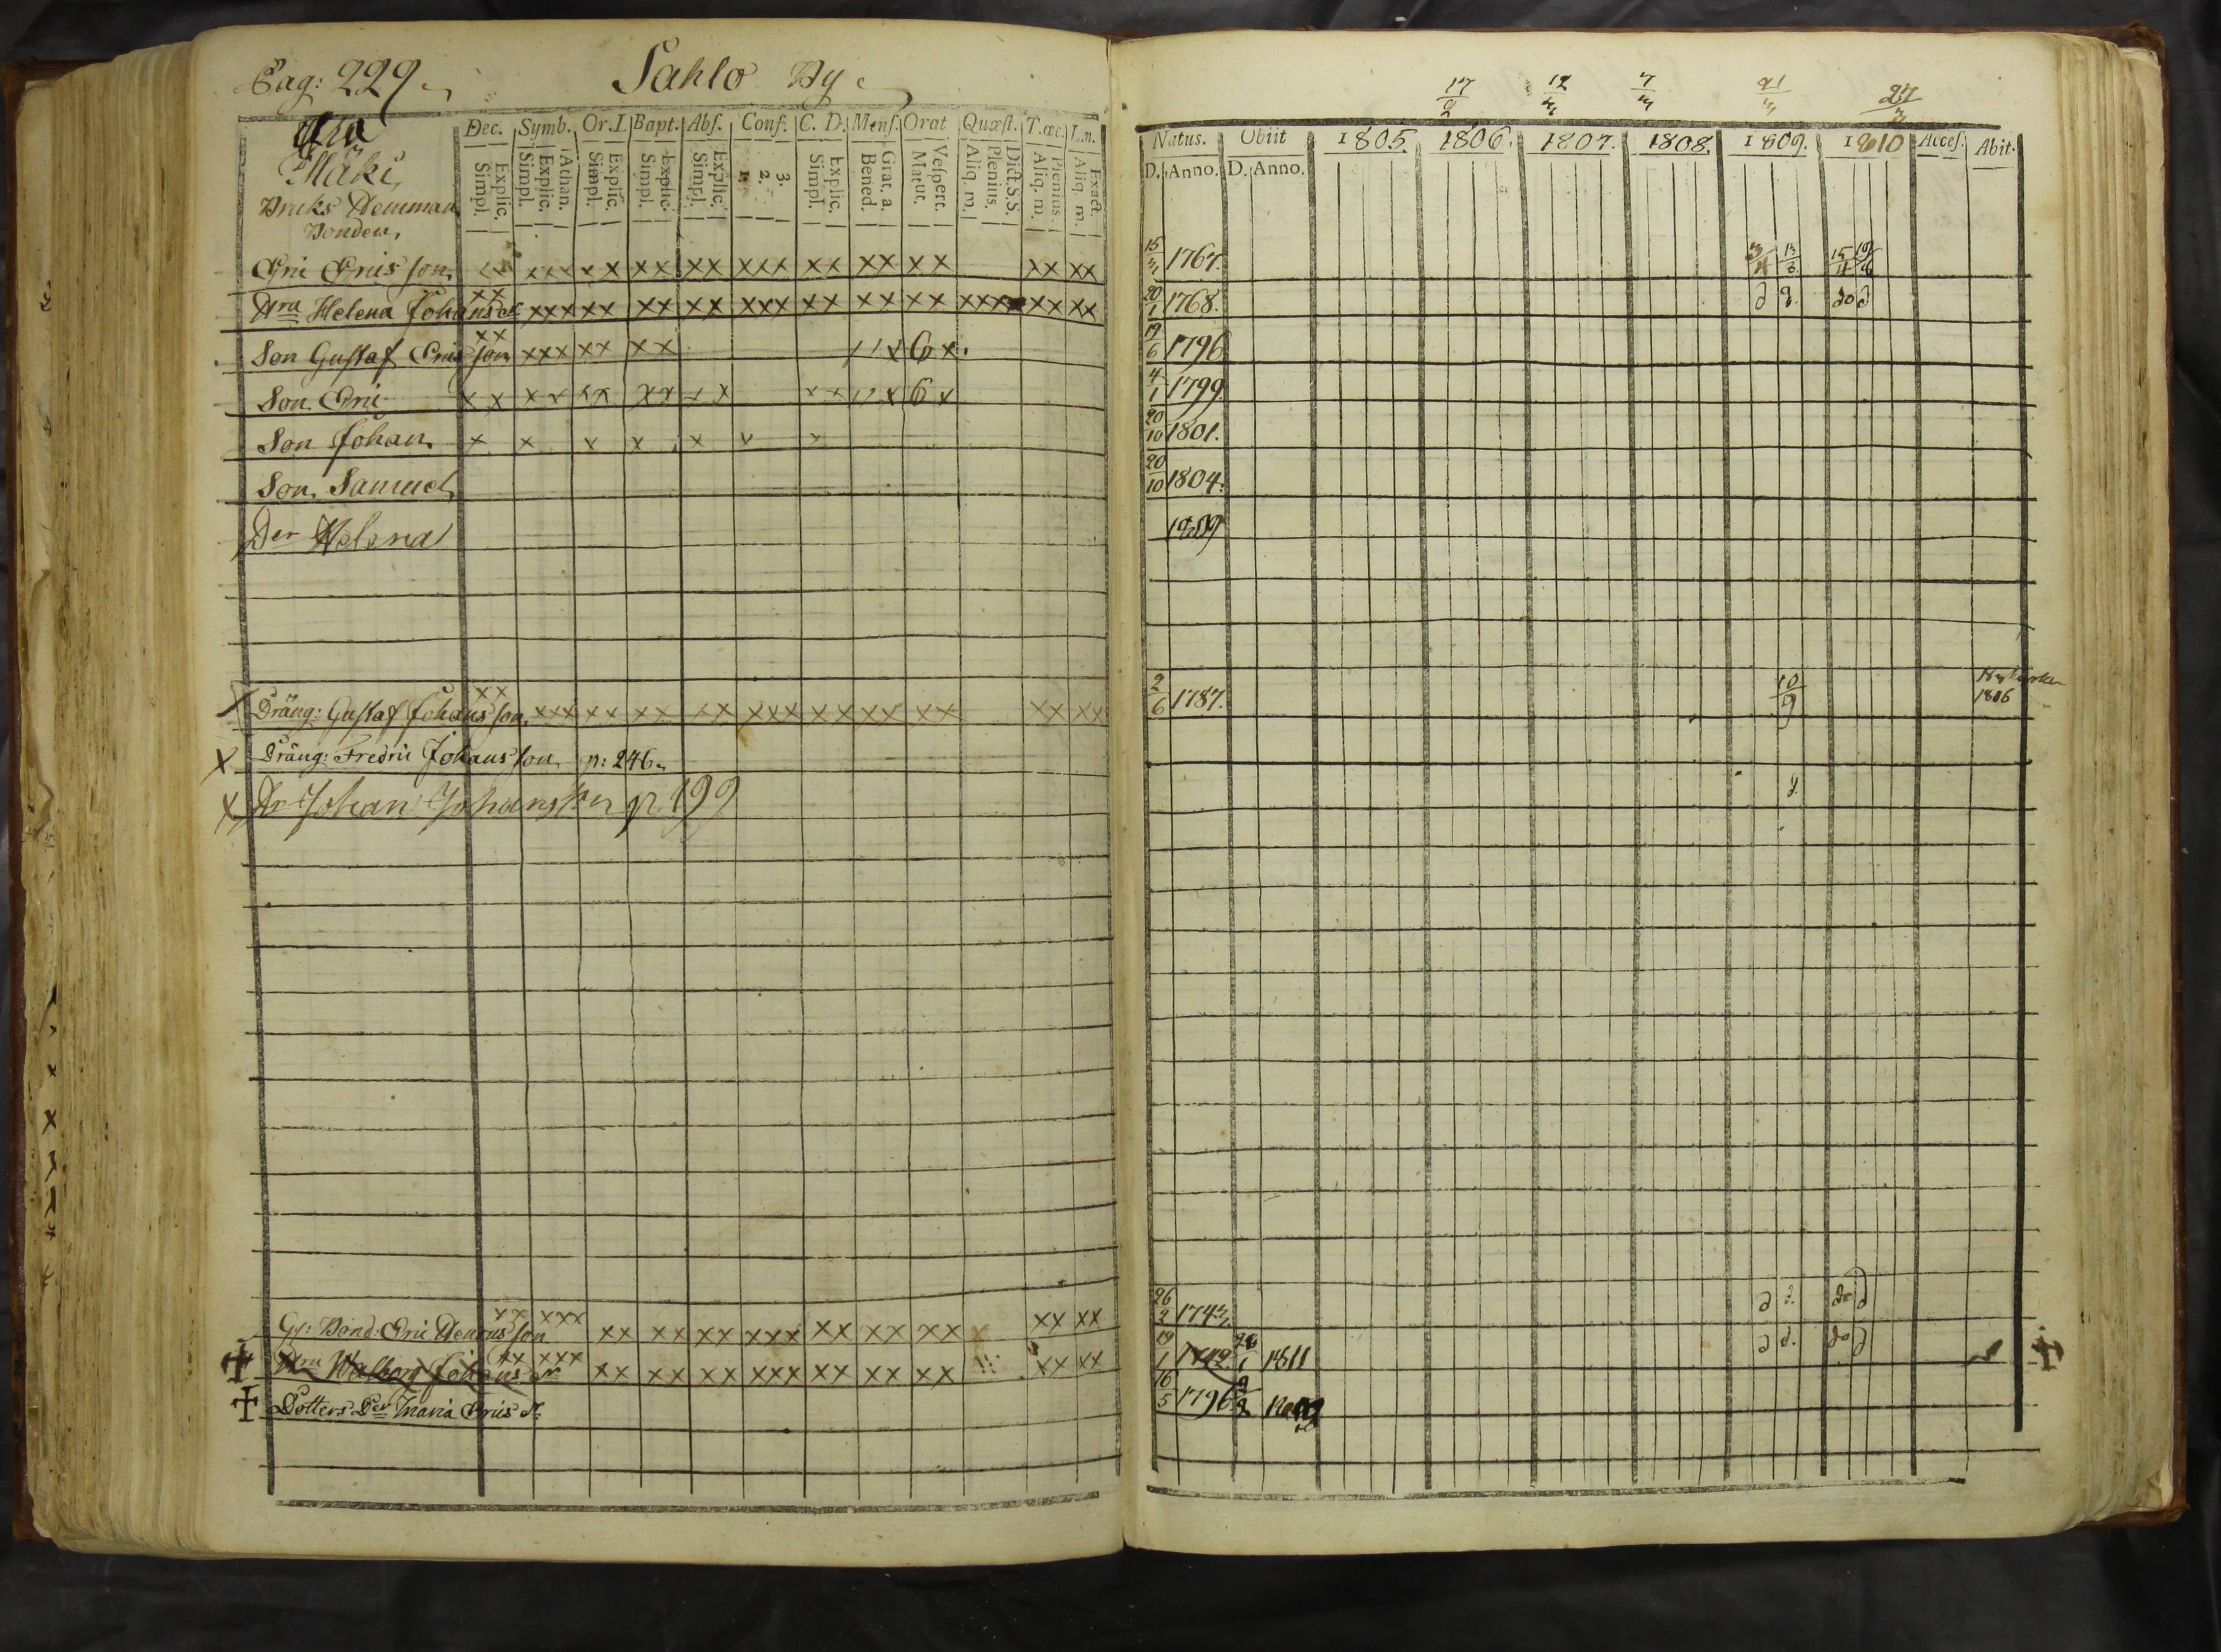 Pag: 229. Sahlo By
17/2 12/3 7/3 21/3 27/3
Dec. Symb. Or. D. Bapt. Abs. Conf. C. D. Mens. Orat Quæst. T. œc. L. n.
Natus. Obiit 1805. 1806. 1807. 1808. 1809. 1810 Accesſ. Abit.
Simpl. Explic. Simpl. Explic. Athan. Simpl. Explic. Simpl. Explic. Simpl. Explic. 1. 2. 3. Simpl. Explic. Bened. Grat. a. Matut. Veſpert. Aliq. m. Plenius. Dict. S. S. Aliq. m. Plenius. Aliq. m. Exact.
D. Anno. D. Anno.
Mäki
Bruks
Bonden,
Eric Ericsſon xx xxx xx xx xx xxx xx xx xx xx xx 15/3 1767. 3/4 13/8 15/4 19/8
Hru Helena Johansdr xx xxx xx xx xx xxx xx xx xx xxxx xx xx 20/1 1768. d d. do d
Son Gustaf Ericsſon xx xxx xx xx 11x 6x. 19/6 1796
Son Eric xx xx xx xx xx xx 11x 6x 4/1 1799.
Son Johan x x x x x x x 20/10 1801.
Son Samuel 20/10 1804.
Der Helena 1809
x Dräng: Gustaf Johansſon xx xxx xx xx xx xxx xx xx xx xx xx 2/6 1787. 10/9 1806
x Dräng: Fredric Johansſon p: 246.
x Dr Johan Johansson p. 199
Gl: Bond: Eric Henricsſon xx xxx xx xx xx xxx xx xx xx xx xx 26/2 1743. d d. do d
Hru Walborg Johansdr xx xxx xx xx xx xxx xx xx xx xx xx 19/1 26/1 1811 d d. do d
Dotters Der Maria Ericsdr 16/5 1796